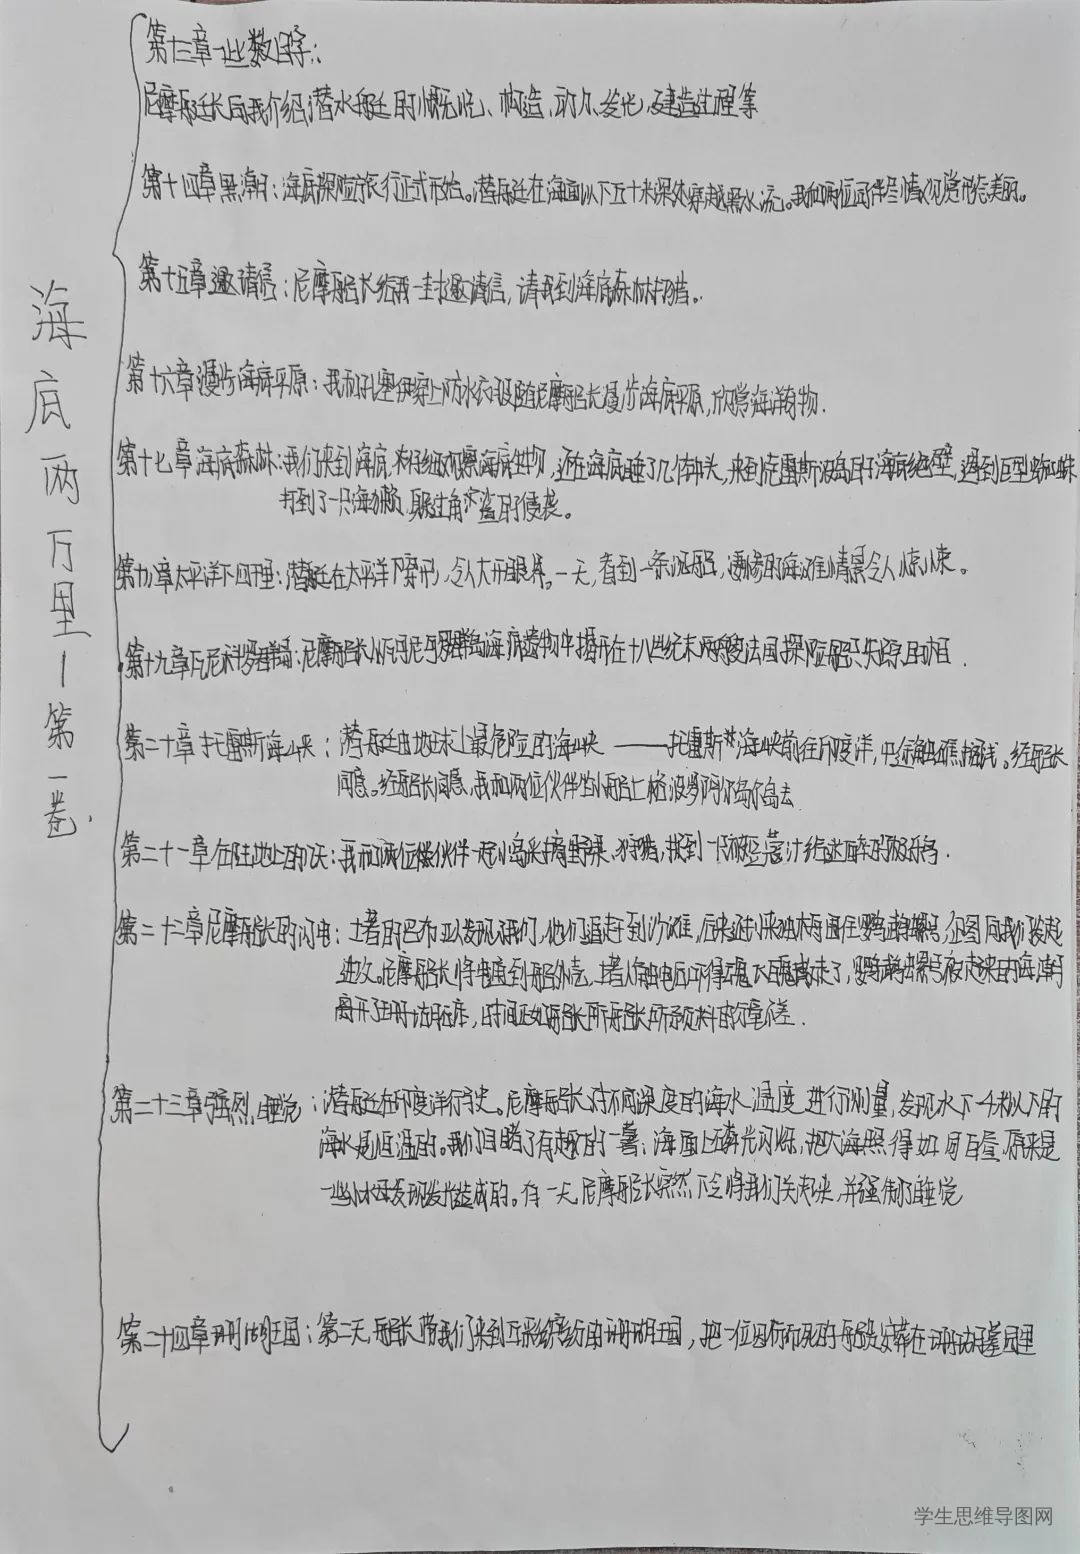 海底两万里—第一卷.
第十三章一些数字:
尼摩船长向我介绍潜水艇的概况、构造、动力、发电、及建造过程等
第十四章黑潮:海底探险旅行正式开始。潜艇在海面以下五十米深处穿越黑水流。我和两位同伴尽情欣赏美丽。
第十五章邀请信:尼摩船长给我一封邀请信,请我到海底森林打猎。
第十六章漫步海底平原:我和孔塞伊穿上防水衣跟随尼摩船长漫步海底平原,欣赏海洋奇物.
第十七章海底森林:我们来到海底,仔细观察海底生物,还在海底睡了几个钟头,来到克雷斯波岛的海底绝壁,遇到巨型蜘蛛
打到了一只海獭,躲过角鲨的侵袭。
第十八章太平洋下四千里:潜艇在太平洋下穿行,令人大开眼界。一天,看到一条沉船,凄惨的海难情景令人惊悚。
第十九章瓦尼科罗群岛:尼摩船长从瓦尼科罗群岛海底遗物中揭开在十八世纪末两艘法国探险船只失踪真相.
第二十章托雷斯海峡:潜艇由地球上最危险的海峡——托雷斯海峡前往印度洋,中途触礁搁浅。经船长
同意。经船长同意,我和两位伙伴坐小船上格波罗阿尔岛去
第二十一章在陆地上的几天:我和两位伙伴一起小岛采摘野果、狩猎,找到一只被豆蔻汁给迷醉的极乐鸟.
第二十二章尼摩船长的闪电:土著的巴布亚发现我们,他们追赶到沙滩,后来还划来独木舟围住鹦鹉螺号,企图向我们发起
进攻。尼摩船长将电通到船外壳,土著人触电后吓得魂飞魄散离走了,鹦鹉螺号被起来的海潮
离开了珊瑚礁座,时间正如船长所船长所预料的分毫不差.
第二十三章强烈睡觉:潜艇在印度洋行驶。尼摩船长对不同深度的海水温度进行测量,发现水下一千米以下的
海水是恒温的。我们目睹了有趣的一幕:海面上磷光闪烁,把大海照得如同白昼,原来是
一些小水母发现发光造成的。有一天,尼摩船长突然下令将我们关起来,并强制了睡觉
第二十四章珊瑚王国:第二天,船长带我们来到五彩缤纷的珊瑚王国,把一位因伤而死的船员安葬在珊瑚墓园里
学生思维导图网